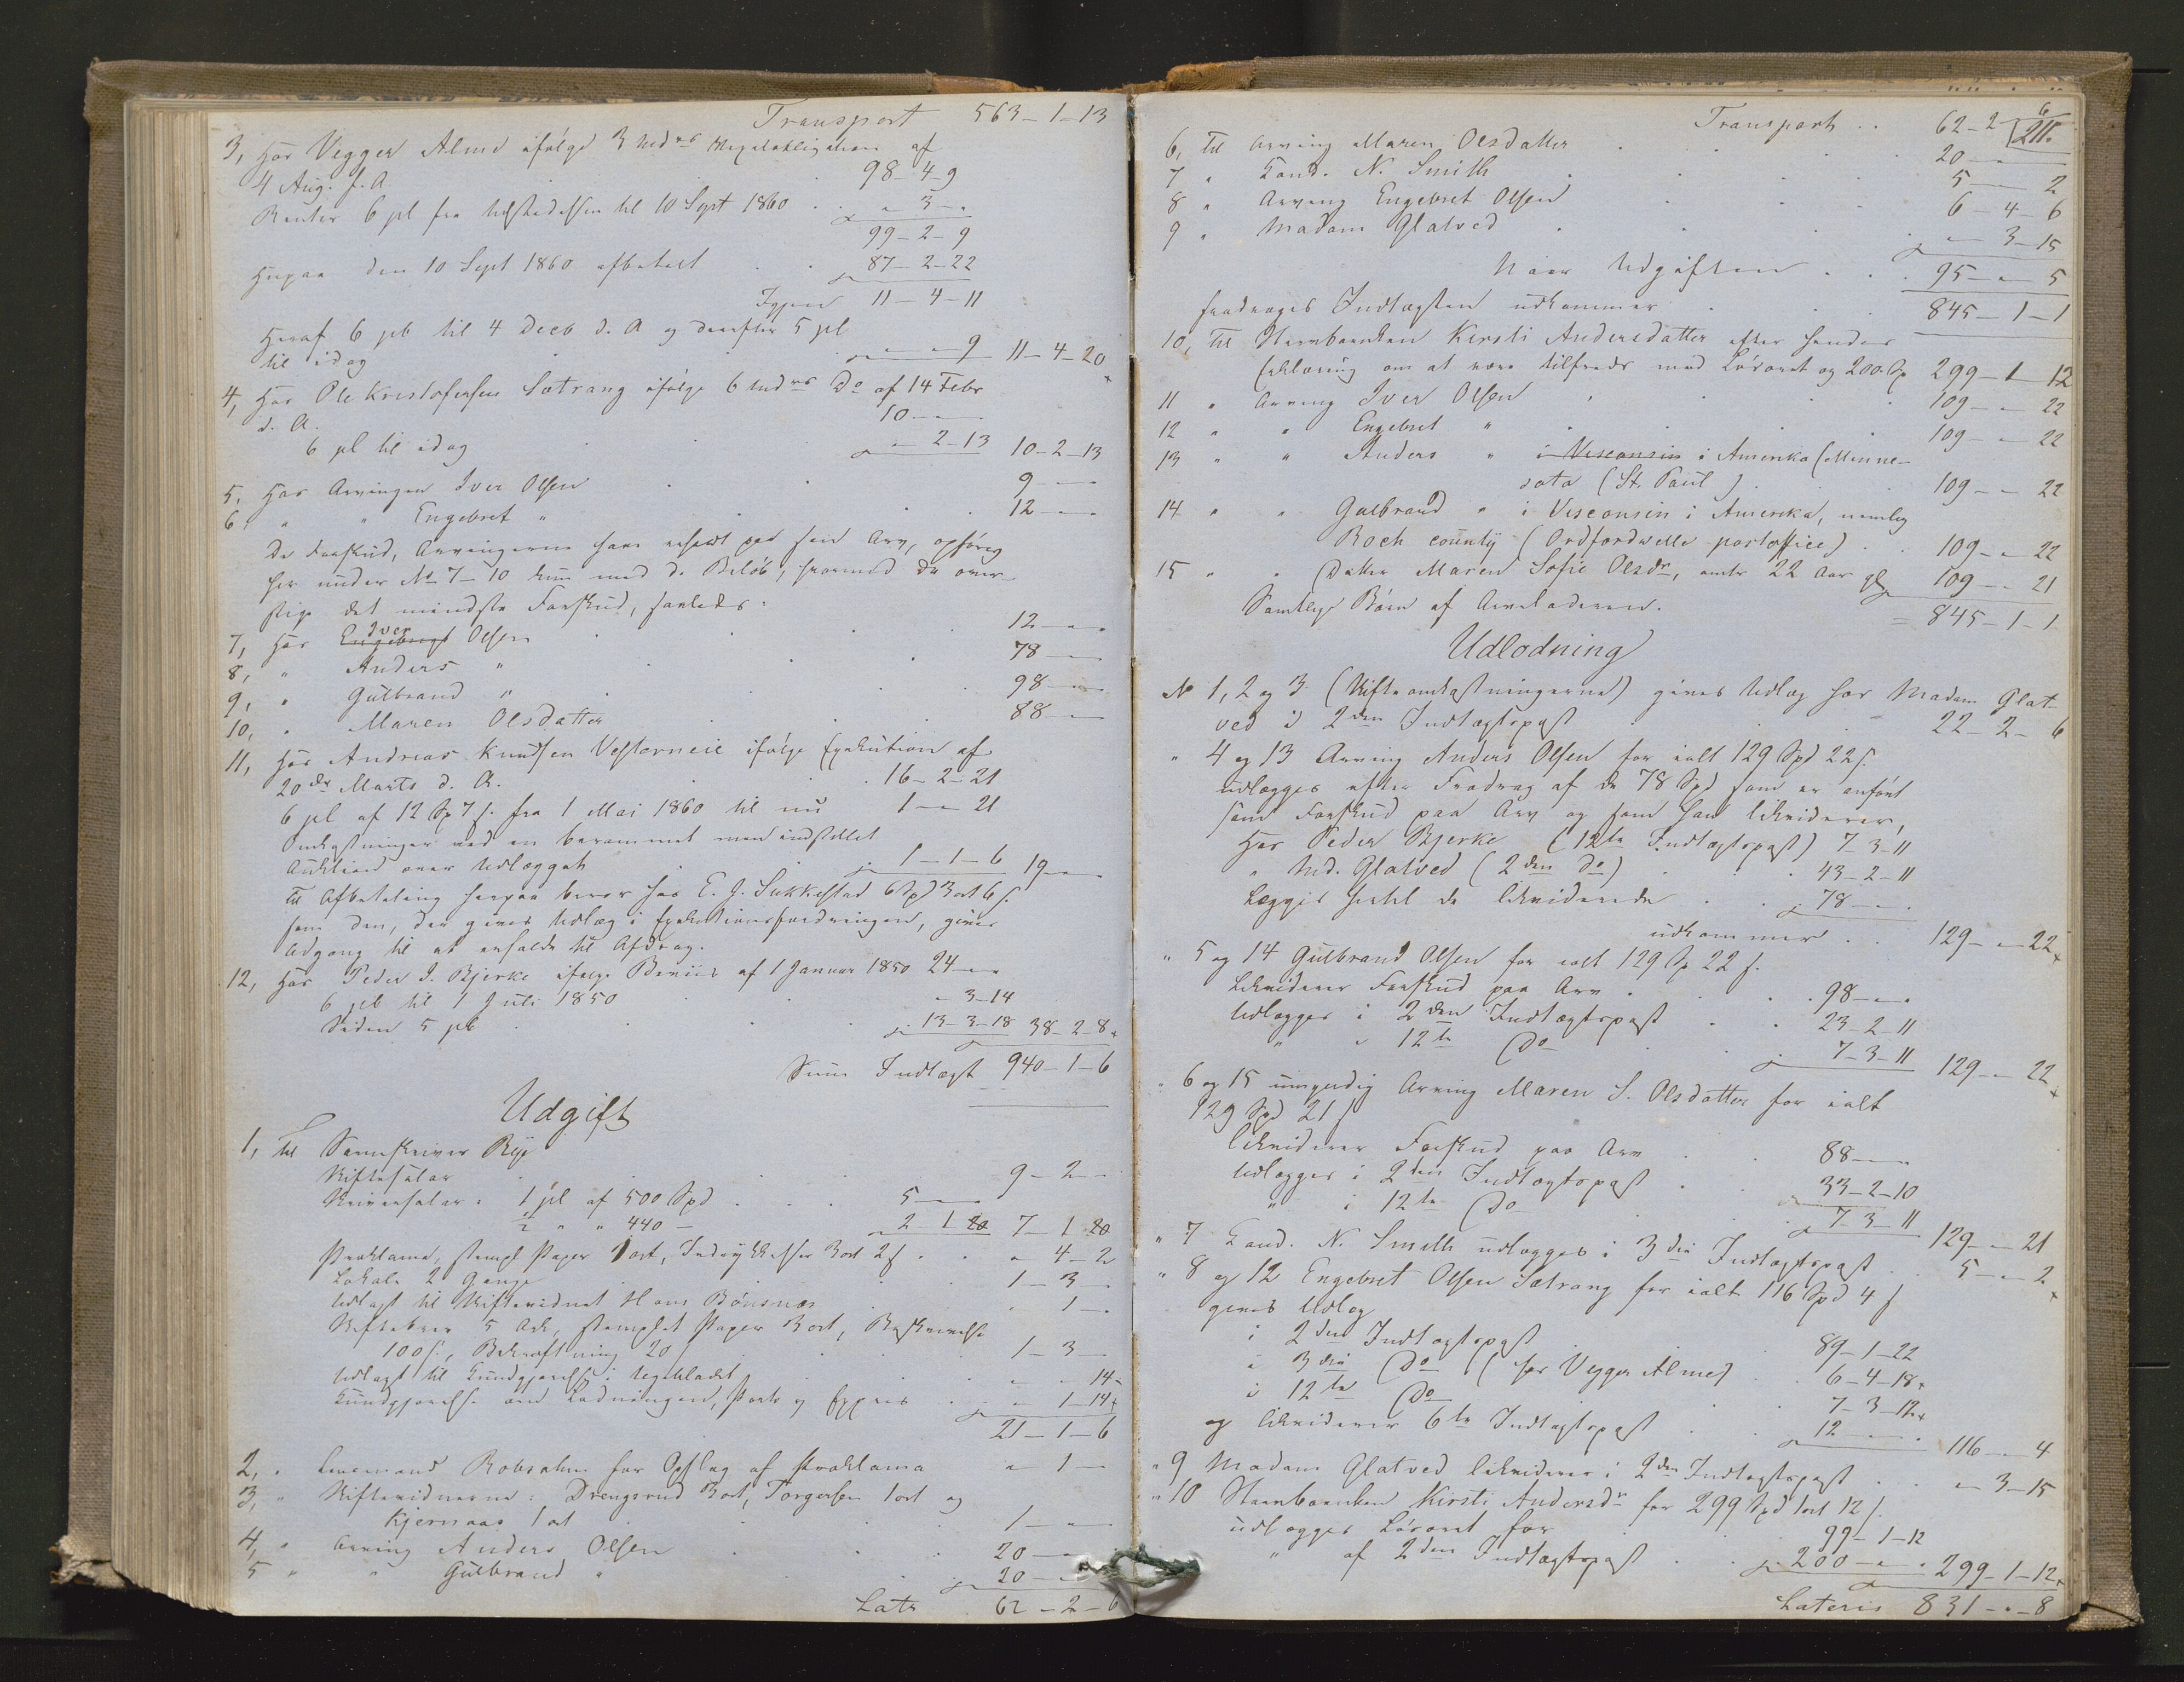 Transport 563-1-13
3, Hos Vegger Alme ifølge 3 Mdrs Vexelobligation af
4 Aug. f. A. 98-4-9
Renter 6 pC fra Udstedelsen til 10 Sept 1860 " 3 "
99-2-9
Herpaa den 10 Sept 1860 afbetalt 87-2-22
Igjen 11-4-11
Heraf 6 pC til 4 Decb d. A og derefter 5 pC
til idag " " 9 11-4-20
4, Hos Ole Kristofersen Sætrang ifølge 6 Mdrs Do af 14 Febr
d. A. 10 " "
6 pC til idag " 2-13 10-2-13
5, Hos Arvingen Iver Olsen 9 " "
6, " " Engebret " 12 " "
De Forskud, Arvingerne have erholdt paa sin Arv, opføres
her under No 7-10 kun med de Beløb, hvormed de over-
stige det mindste Forskud, saaledes:
7, Hos Engebregt Iver Olsen 12 " "
8, " Anders " 78 " "
9, " Gulbrand " 98 " "
10, " Maren Olsdatter 88 " "
11, Hos Andreas Knudsen Vesterneie ifølge Exekution af
20de Marts d. A. 16-2-21
6 pC af 12 Sp 7 s. fra 1 Mai 1860 til nu 1 " 21
Omkostninger ved en berammet men indstillet
Auktion over Udlægget 1-1-6 19 " "
Til Afbetaling herpaa beror hos E. J. Sukkestad 6 Sp 3 ort 6 s.
som den, der gives Udlæg i Exekutionsfordringen, gives
Adgang til at erholde til Afdrag.
12, Hos Peder J. Bjerke ifølge Beviis af 1 Januar 1850 24 " "
6 pC til 1 Juli 1850 " 3-14
Siden 5 pC 13-3-18 38-2-8
Sum Indtægt 940-1-6
Udgift
1, Til Sorenskriver Bye
Skiftesalær 9-2 "
Skriversalær: 1 pC af 500 Spd 5 " "
1/2 " " 440 - 2 1 20 7-1 20
Proklama, stempl Papir 1 ort, Indrykkelse 3 ort 2 s " 4-2
Lokale 2 Gange 1-3 "
Udlagt til Skiftevidnet Hans Bönsnæs " 1 "
Skiftebrev 5 Ark, stemplet Papir 3 ort, Beskrivelse
100 s., Bekræftning 20 s 1-3 "
Udlagt til Kundgjørelse i Ugebladet " " 14
Kundgjørelse om Lodningen, Porto og Expres " 1-14
21-1-6
2, " Lensmand Robsahm for Opslag af Proklama " 1 "
3, " Skiftevidnerne: Drengsrud 3 ort, Torgersen 1 ort og
Kjernaas 1 ort 1 " "
4, " Arving Anders Olsen 20 " "
5 " " Gulbrand " 20 " "
Lats 62-2-6
211.
Transport 62-2-6
6, Til Arving Maren Olsdatter 20 " "
7 " Cand. N. Smith 5 " 2
8 " Arving Engebret Olsen 6-4-6
9 " Madam Glatved " 3-15
Naar Udgiften 95 " 5
fradrages Indtægten udkommer 845-1-1
10, Til Stervboenken Kersti Andersdatter efter hendes
Erklæring om at være tilfreds med Løsøret og 200 Sp 299-1-12
11 " Arving Iver Olsen 109 " 22
12 " " Engebret " 109 " 22
13 " " Anders " i Visconsin i Amerika (Minne-
sota (St. Paul) 109 " 22
14 " " Gulbrand " i Visconsin i Amerika, nemlig
Roch county (Ordfordwelle postoffice) 109 " 22
15 " " Datter Maren Sofie Olsdr, omtr 22 Aar gl 109 " 21
Samtlige Børn af Arveladeren. = 845-1-1
Udlodning
No 1, 2 og 3 (Skifteomkostningerne) gives Udlæg hos Madam Glat-
ved i 2den Indtægtspost 22-2-6
" 4 og 13 Arving Anders Olsen for ialt 129 Spd 22 s.
udlægges efter Fradrag af de 78 Spd som er anført
som Forskud paa Arv og som han likviderer,
Hos Peder Bjerke (12te Indtægtspost) 7-3-11
" Md. Glatved (2den Do) 43-2-11
Lægges hertil de likviderede 78 " "
udkommer 129 " 22
" 5 og 14 Gulbrand Olsen for ialt 129 Sp 22 s.
likviderer Forskud paa Arv 98 " "
Udlægges i 2den Indtægtspost 23-2-11
" i 12te Do 7-3-11 129 " 22
" 6 og 15 umyndig Arving Maren S. Olsdatter for ialt
129 Spd 21 s
likviderer Forskud paa Arv 88 " "
Udlægges i 2den Indtægtspost 33-2-10
" i 12te Do 7-3-11 129 " 21
" 7 Cand. N. Smith udlægges i 3die Indtægtspost 5 " 2
" 8 og 12 Engebret Olsen Sætrang for ialt 116 Spd 4 s
gives Udlæg
i 2den Indtægtspost 89-1-22
i 3die Do (hos Vegger Alme) 6-4-18
i 12te Do 7-3-12
og likviderer 6te Indtægtspost 12 " " 116 " 4
" 9 Madam Glatved likviderer i 2den Indtægtspost " 3-15
" 10 Stervboenken Kersti Andersdr for 299 Spd 1 ort 12 s.
udlægges Løsøret for 99-1-12
" af 2den Indtægtspost 200 " " 299-1-12
Lateris 831 " 8